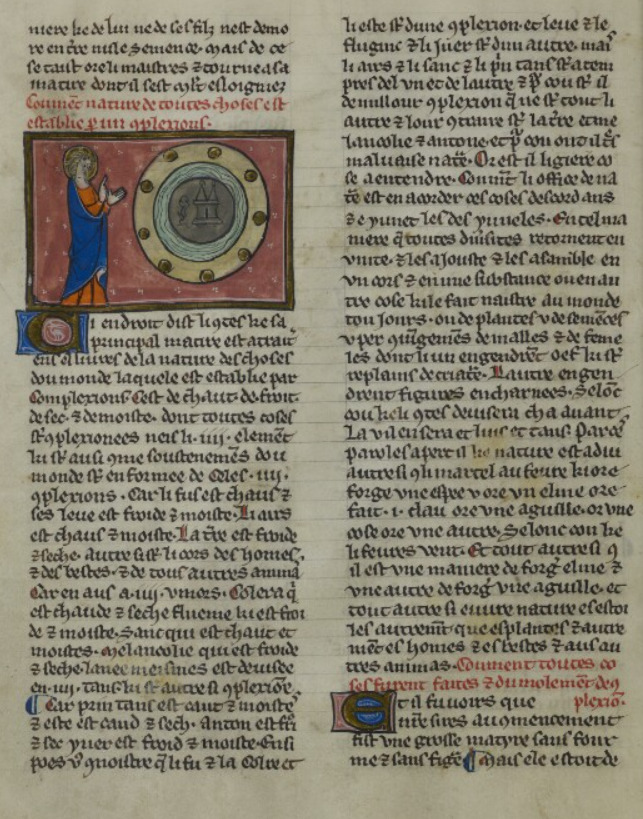 niere ke de lui ne de ses filz nest demo
re en tre nis le semence. mais de ce
se taist ore li maistres ⁊ tourne a sa
matire dont il sest mlt esloignies
Coument nature de toutes choses est
establie p̃ iiii 9plexions.
Ci endroit dist li 9tes ke sa
principal matire est atrait
ens el liures de la nature des choses
dou monde laquele est establie par
Complexions. Cest de chaut. de froit.
de sec. ⁊ de moiste. dont toutes coses
st̃ 9plexionees neis li. iiii. element
ki st̃ ausi 9me soustenemẽs dou
monde st̃ enformee de celes. iiii.
9plexions. Car li fus est chaus ⁊
ses leue est froide ⁊ moiste. Li airs
est chaus ⁊ moiste. La tr̃e est froide
⁊ seche. autresi st̃ li cors des homes.
⁊ des bestes. ⁊ de tous autres anima
Car en aus a. iiii. vmors. Colera q̃
est chaude ⁊ seche fluenie ki est froi
de ⁊ moiste. Sanc qui est chaut et
moistes. Melancolie qui est froide
⁊ seche. lanee meismes est deuisee
en. iiii. tans ki st̃ autresi 9plexiõe.
Car prin tans est caut ⁊ moiste
⁊ este est caud ⁊ sech. anton est fr̃
⁊ sec yuer est froid ⁊ moiste. Ensi
poes v9 9noistre q̃ li fu ⁊ la colre et
li este st̃ dune 9plexion. et leue ⁊ le
fluginc ⁊ li juer st̃ dun autre. mais
li airs ⁊ li sanc ⁊ li pñ tans st̃ atem
pres del vn et de lautre ⁊ p̃ cou st̃ il
de millour 9plexion q̃ ne st̃ tout li
autre ⁊ lour 9traire st̃ la tr̃e et me
lancolie ⁊ antone. et p̃ cou ont il s̃
maluaise natr̃e. Or est il ligiere co
se a entendre. Coumẽt li office de na
tr̃e est en acorder ces coses descordans
⁊ eyuuer les des yuueles. En tel ma
niere q̃ toutes diũsites retornent en
vnite. ⁊ les aiouste ⁊ les asamble en
vn cors ⁊ en vne substance ou en au
tre cose ki le fait naistre au monde
tou jours. ou de plantes v de semẽces
v per 9iu͂gemẽs de malles ⁊ de feme
les dont li vn engendrẽt oef ki st̃
replains de criatr̃e. Lautre engen
drent figures encharnees. Selonc
cou ke li 9tes deuisera cha auant.
La v il en sera et lius et tans. Par ces
paroles apert il ke nature est a diu
autresi 9 li martel au feure ki ore
forge vne espee v ore vn elme ore
fait. i. clau ore vne aguille. or vne
cose ore vne autre. Selonc cou ke
li feures veut. Et tout autresi 9
il est vne maniere de forg̃ elme ⁊
vne autre de forg̃ vne aguille. et
tout autresi euure nature es estoi
les autremẽt que es plantes ⁊ autre
mẽt es homes ⁊ es bestes ⁊ as au
tres animas. Coument toutes co
ses furent faites ⁊ du molemẽt de 9
plexiõ.
Et il fu voirs que
nr̃e sires au 9mencement
fist vne grosse matyre sans four
me ⁊ sans figr̃e Mais ele estoit de